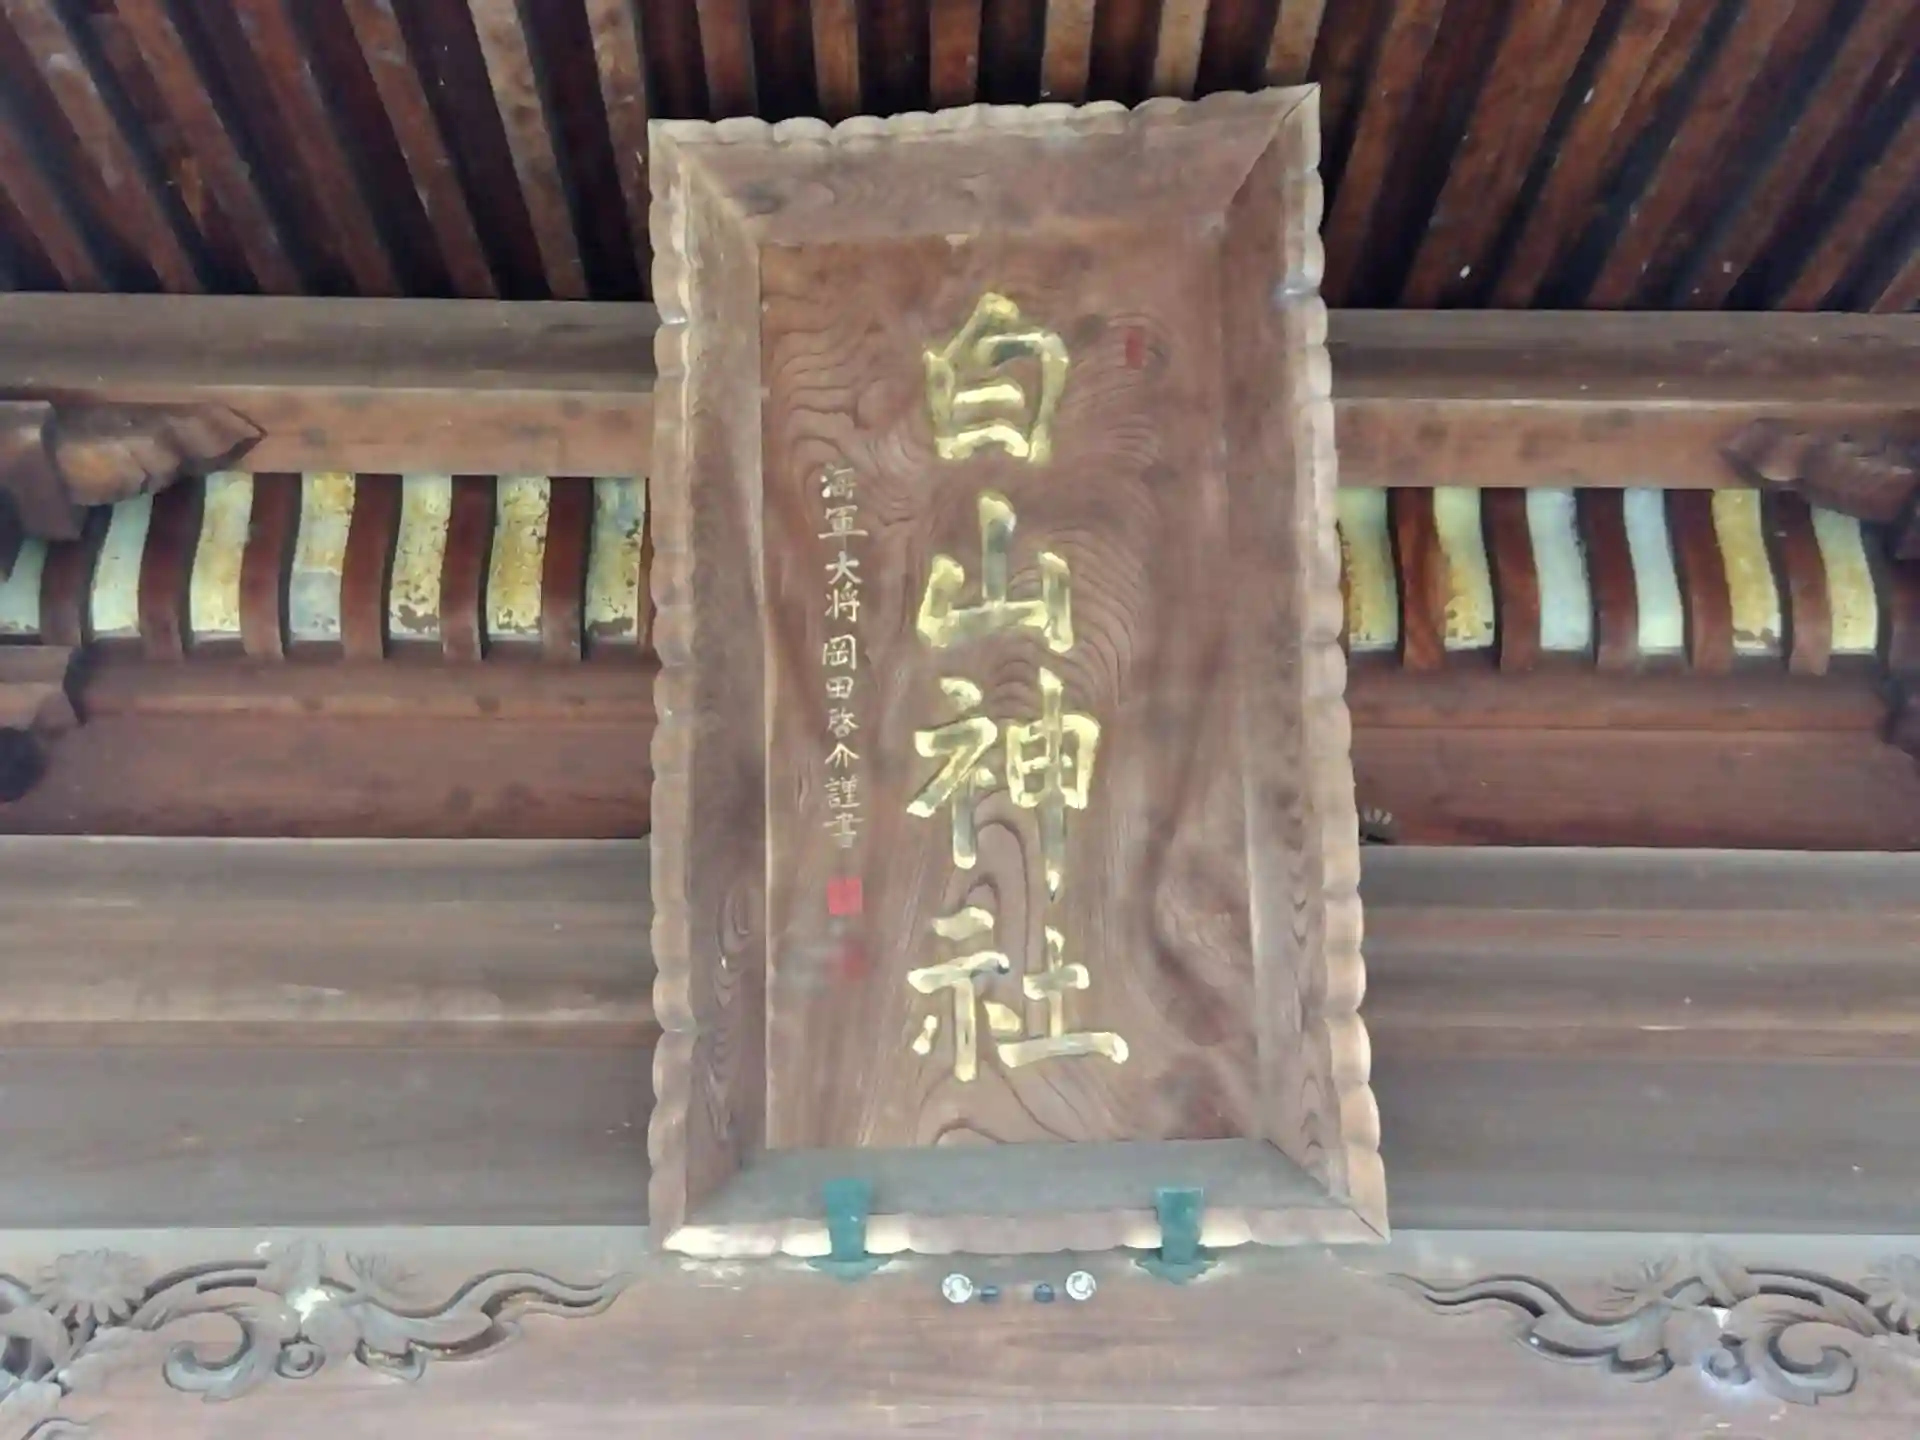 白山神社
海軍大将岡田啓介謹書